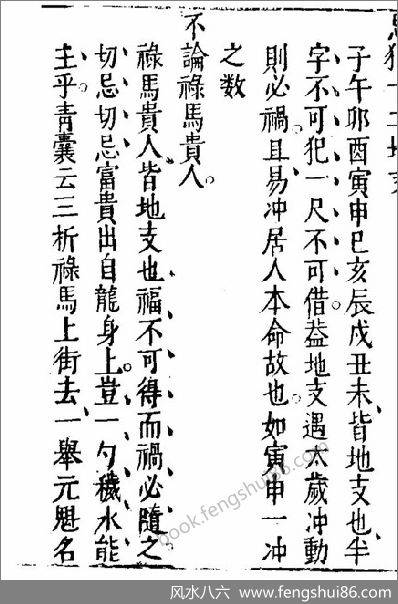 忌犯十二地支
子午卯酉寅申巳亥辰戌丑未皆地支也、半
字不可犯一尺不可借。益地支遇太歲冲動
則必禍。且易冲居人本命故也。如寅申一冲
之数
不論祿馬貴人。
祿馬貴人皆地支也、福不可得而禍必隨之
切忌切忌富貴出自龍身上。豈一勺穢水能
主乎青囊云三析祿馬上街去、一舉元魁名
book.fengshui86.com
风水八六 | www.fengshui86.com